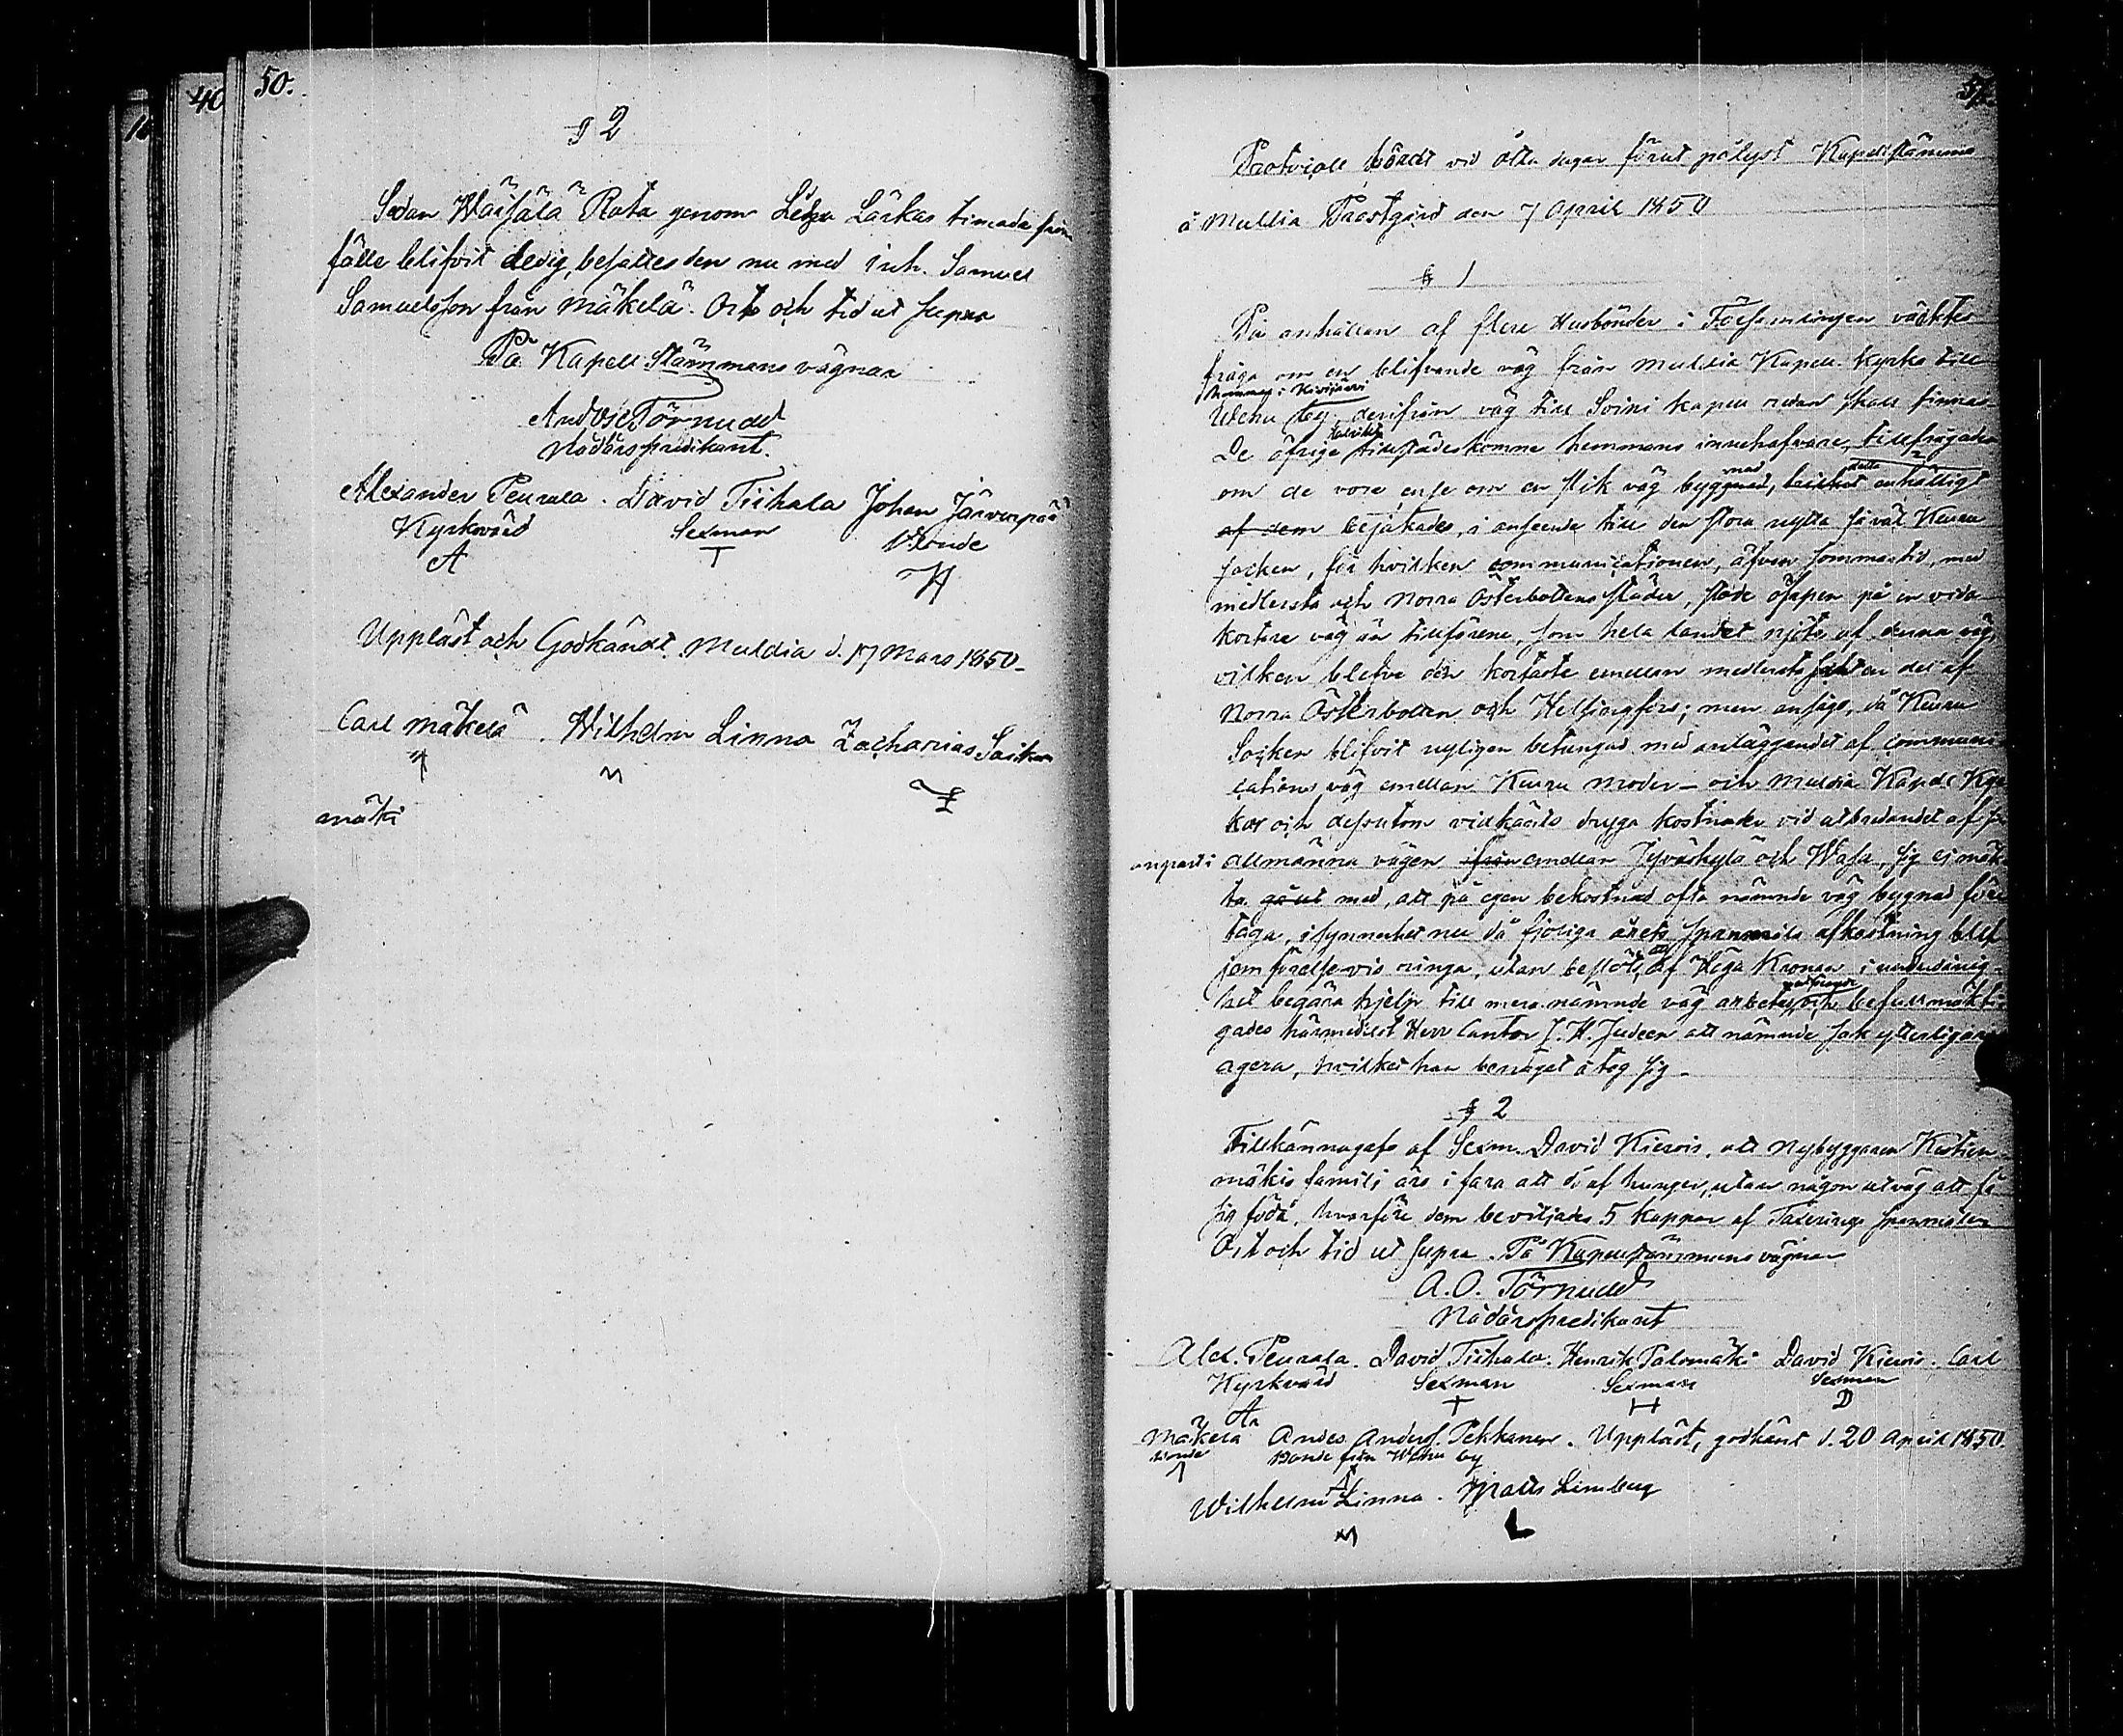 40
50.
§ 2
Sedan Wäisälä Rota genom Lärkas timade från
fälle blifvit ledig, besattes den nu med inh. Samuel
Samuelsson från Mäkelä. Ort och tid ut supra
På Kapell Stämmans vägnar
Törnudd
Nådårspredikant.
Alexander Peurala. David Tiihala Johan Järvenpää
Kyrkvärd Sexman Bonde
A T H
Uppläst och Godkändt. Muldia d. 17 Mars 1850.
Carl Mäkelä. Wilhelm Linna Zacharias
mäki
51.
Protocoll hördt vid åtta dagar förut pålyst Kapellstämma
å Muldia Prestgård den 7 April 1850
§ 1
På anhållan af flere Husbönder i Församlingen väcktes
fråga om en blifvande väg från Muldia Kapell Kyrka till
hemman i Kivijärvi
Wehu by, derifrån väg till Soini kapell redan skall finnas.
De öfrige tillstädeskomne hemmans innehafvare, tillfrågades
om de vore ense om en slik väg byggnad, enhälligt
af dem bejakades, i anseende till den stora nytta så väl Keuru
socken, för hvilken communicationen, äfven sommartid, med
medlersta och Norra Österbottens städer, stode öppen på en vida
kortare väg än tillförene, som hela landet njöte af denna väg,
vilken blefve den kortaste emellan medlersta samt en del af
Norra Österbotten och Helsingfors; men ansågo, då Keuru
Socken blifvit nyligen betungad med anläggandet af communi-
cations väg emellan Keuru Moder- och Muldia Kapell Kyr
kor och dessutom vidkänts dryga kostnader vid utbredandet af
anpart i allmänna vägen ifrån emellan Jyväskylä och Wasa, sig ej mäk-
ta gå ut med, att på egen bekostnad ofta nämnde väg bygnad före
taga, i synnerhet nu då fjoliga årets spannmåls afkastning blef
jemförelsevis ringa, utan beslöts, att af Höga Kronan i underdånig-
het begära hjelp till mera nämnde väg arbetes och befullmäkti-
gades härmedelst Herr Cantor J. H. Judeen att nämnde sak ytterligare
agera, hvilket han benäget åtog sig.
§ 2
Tillkännagafs af Sexm. David Kiesois, att Nybyggaren
mäkis familj äro i fara att dö af hunger, utan någon utväg att få
sig föda, hvarföre dem beviljades 5 kappar af Tax­erings spannmålen
Ort och tid ut supra. På Kapellstämmans vägnar
A. O. Törnudd
Nådårspredikant
Alex. Peurala. David Tiihala. Henrik Palomäki David Kiesois. Carl
Kyrkvärd Sexman Sexman Sexman
A T H D
Mäkelä Anders Anders. Pekkanen. Uppläst, godkänt d. 20 April 1850.
bonde Bonde från Wehu by
Wilhelm Linna. Matts Limberg
M L